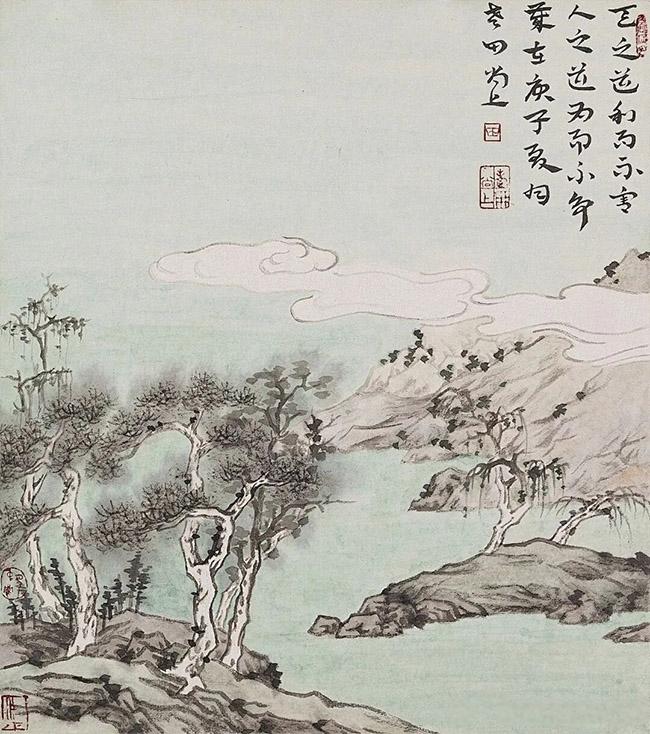 天之道利而不害
人之道为而不争
岁在庚子夏月
田尚上
田